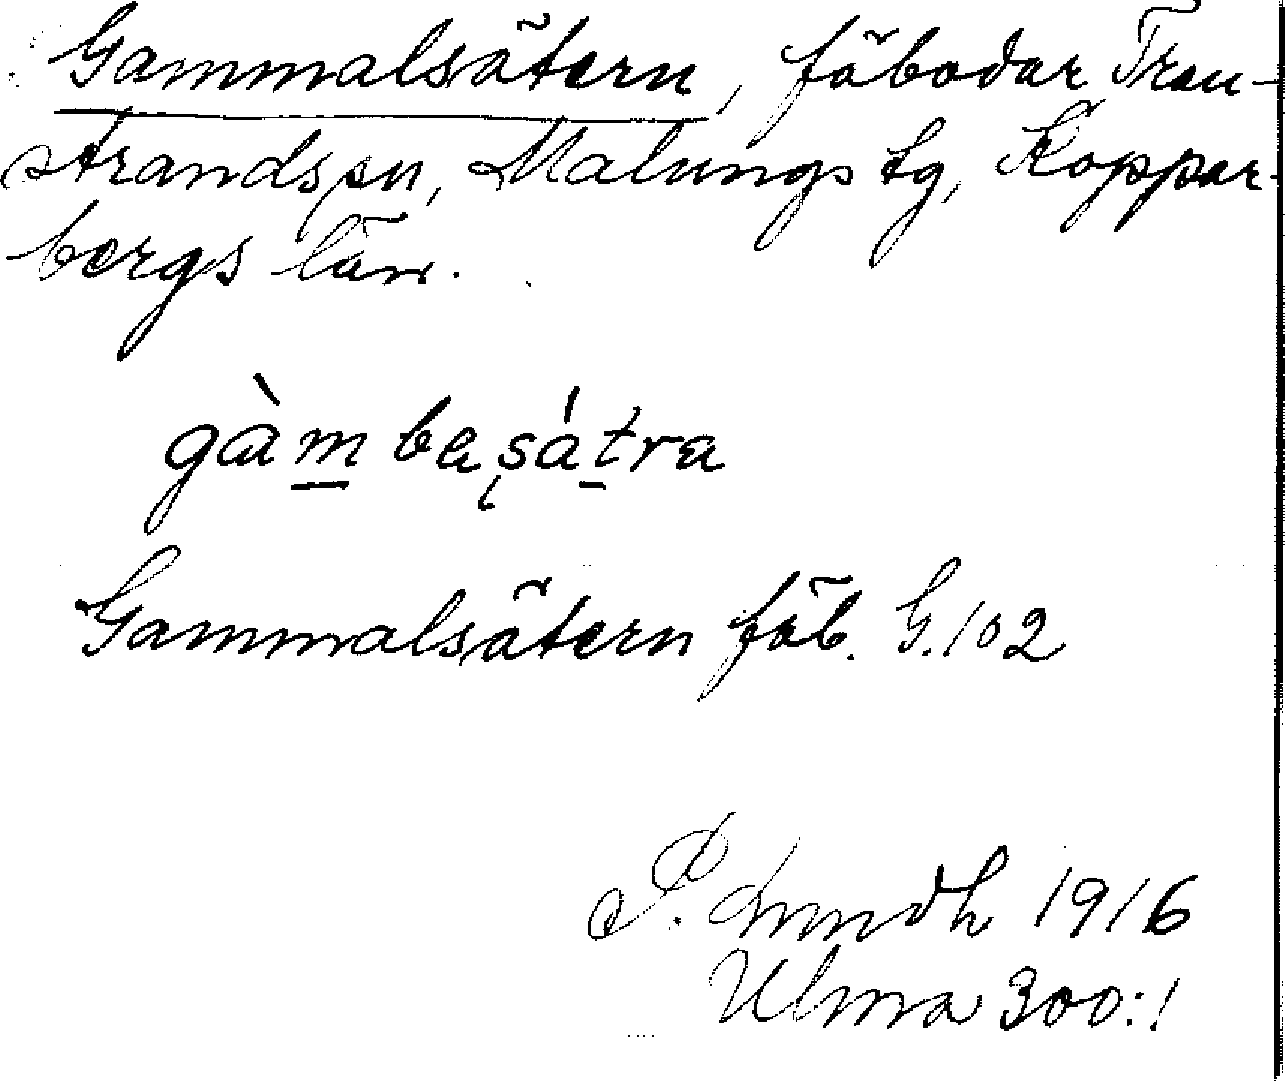 Gammalsätern, fäbodar Tran-
strands sn, Malungs tg, Koppar-
bergs län.
gàm ba sá tra
Gammalsätern fäb. G.102
P. Lundh 1916
Ulma 300:1